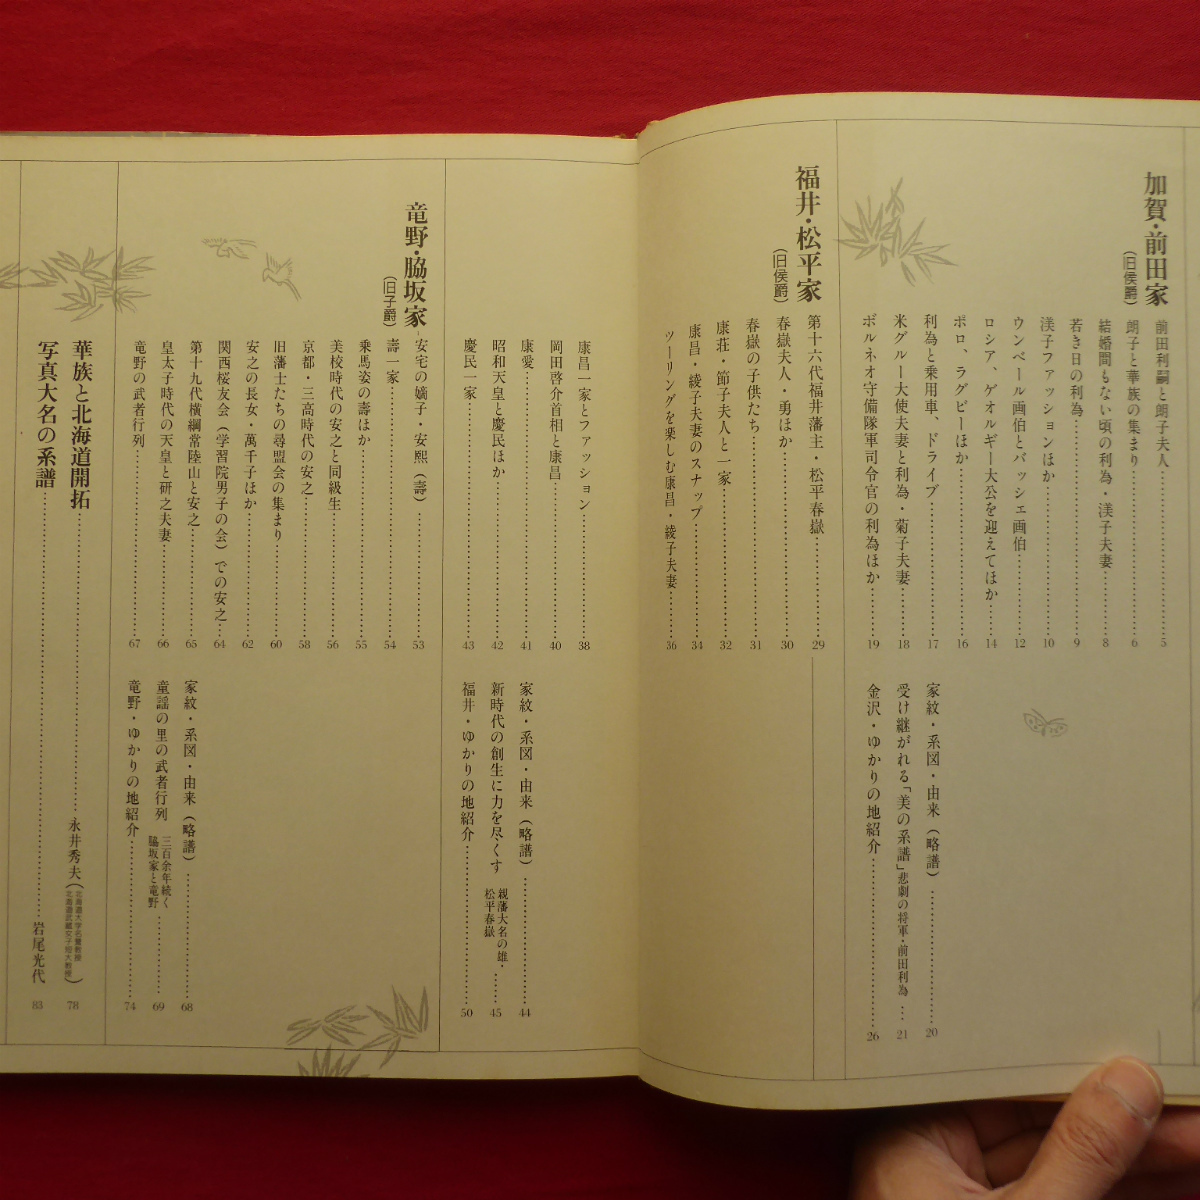 加賀・前田家
（旧侯爵）
前田利嗣と朗子夫人……………5
朗子と華族の集まり……………6
結婚間もない頃の利為・渼子夫妻……………8
若き日の利為……………9
渼子ファッションほか……………10
ウンベール画伯とバッシェ画伯……………12
ロシア、ゲオルギー大公を迎えてほか……………14
ポロ、ラグビーほか……………16
利為と乗用車、ドライブ……………17
米グルー大使夫妻と利為・菊子夫妻……………18
ボルネオ守備隊軍司令官の利為ほか……………19
家紋・系図・由来（略譜）……………20
受け継がれる「美の系譜」悲劇の将軍・前田利為…21
金沢・ゆかりの地紹介……………26
福井・松平家
（旧侯爵）
第十六代福井藩主・松平春嶽……………29
春嶽夫人・勇ほか……………30
春嶽の子供たち……………31
康荘・節子夫人と一家……………32
康昌・綾子夫妻のスナップ……………34
ツーリングを楽しむ康昌・綾子夫妻……………36
康昌一家とファッション……………38
岡田啓介首相と康昌……………40
康愛……………41
昭和天皇と慶民ほか……………42
慶民一家……………43
家紋・系図・由来（略譜）……………44
新時代の創生に力を尽くす 親藩大名の雄・松平春嶽……45
福井・ゆかりの地紹介……………50
竜野・脇坂家
（旧子爵）
安宅の嫡子・安熙（壽）……………53
壽一家……………54
乗馬姿の壽ほか……………55
美校時代の安之と同級生……………56
京都・三高時代の安之……………58
旧藩士たちの尋盟会の集まり……………60
安之の長女・萬千子ほか……………62
関西桜友会（学習院男子の会）での安之……64
第十九代横綱常陸山と安之……………65
皇太子時代の天皇と研之夫妻……………66
竜野の武者行列……………67
家紋・系図・由来（略譜）……………68
童謡の里の武者行列 三百余年続く脇坂家と竜野………69
竜野・ゆかりの地紹介……………74
華族と北海道開拓……………永井秀夫（北海道大学名誉教授 北海道武蔵女子短大教授）78
写真大名の系譜……………岩尾光代 83